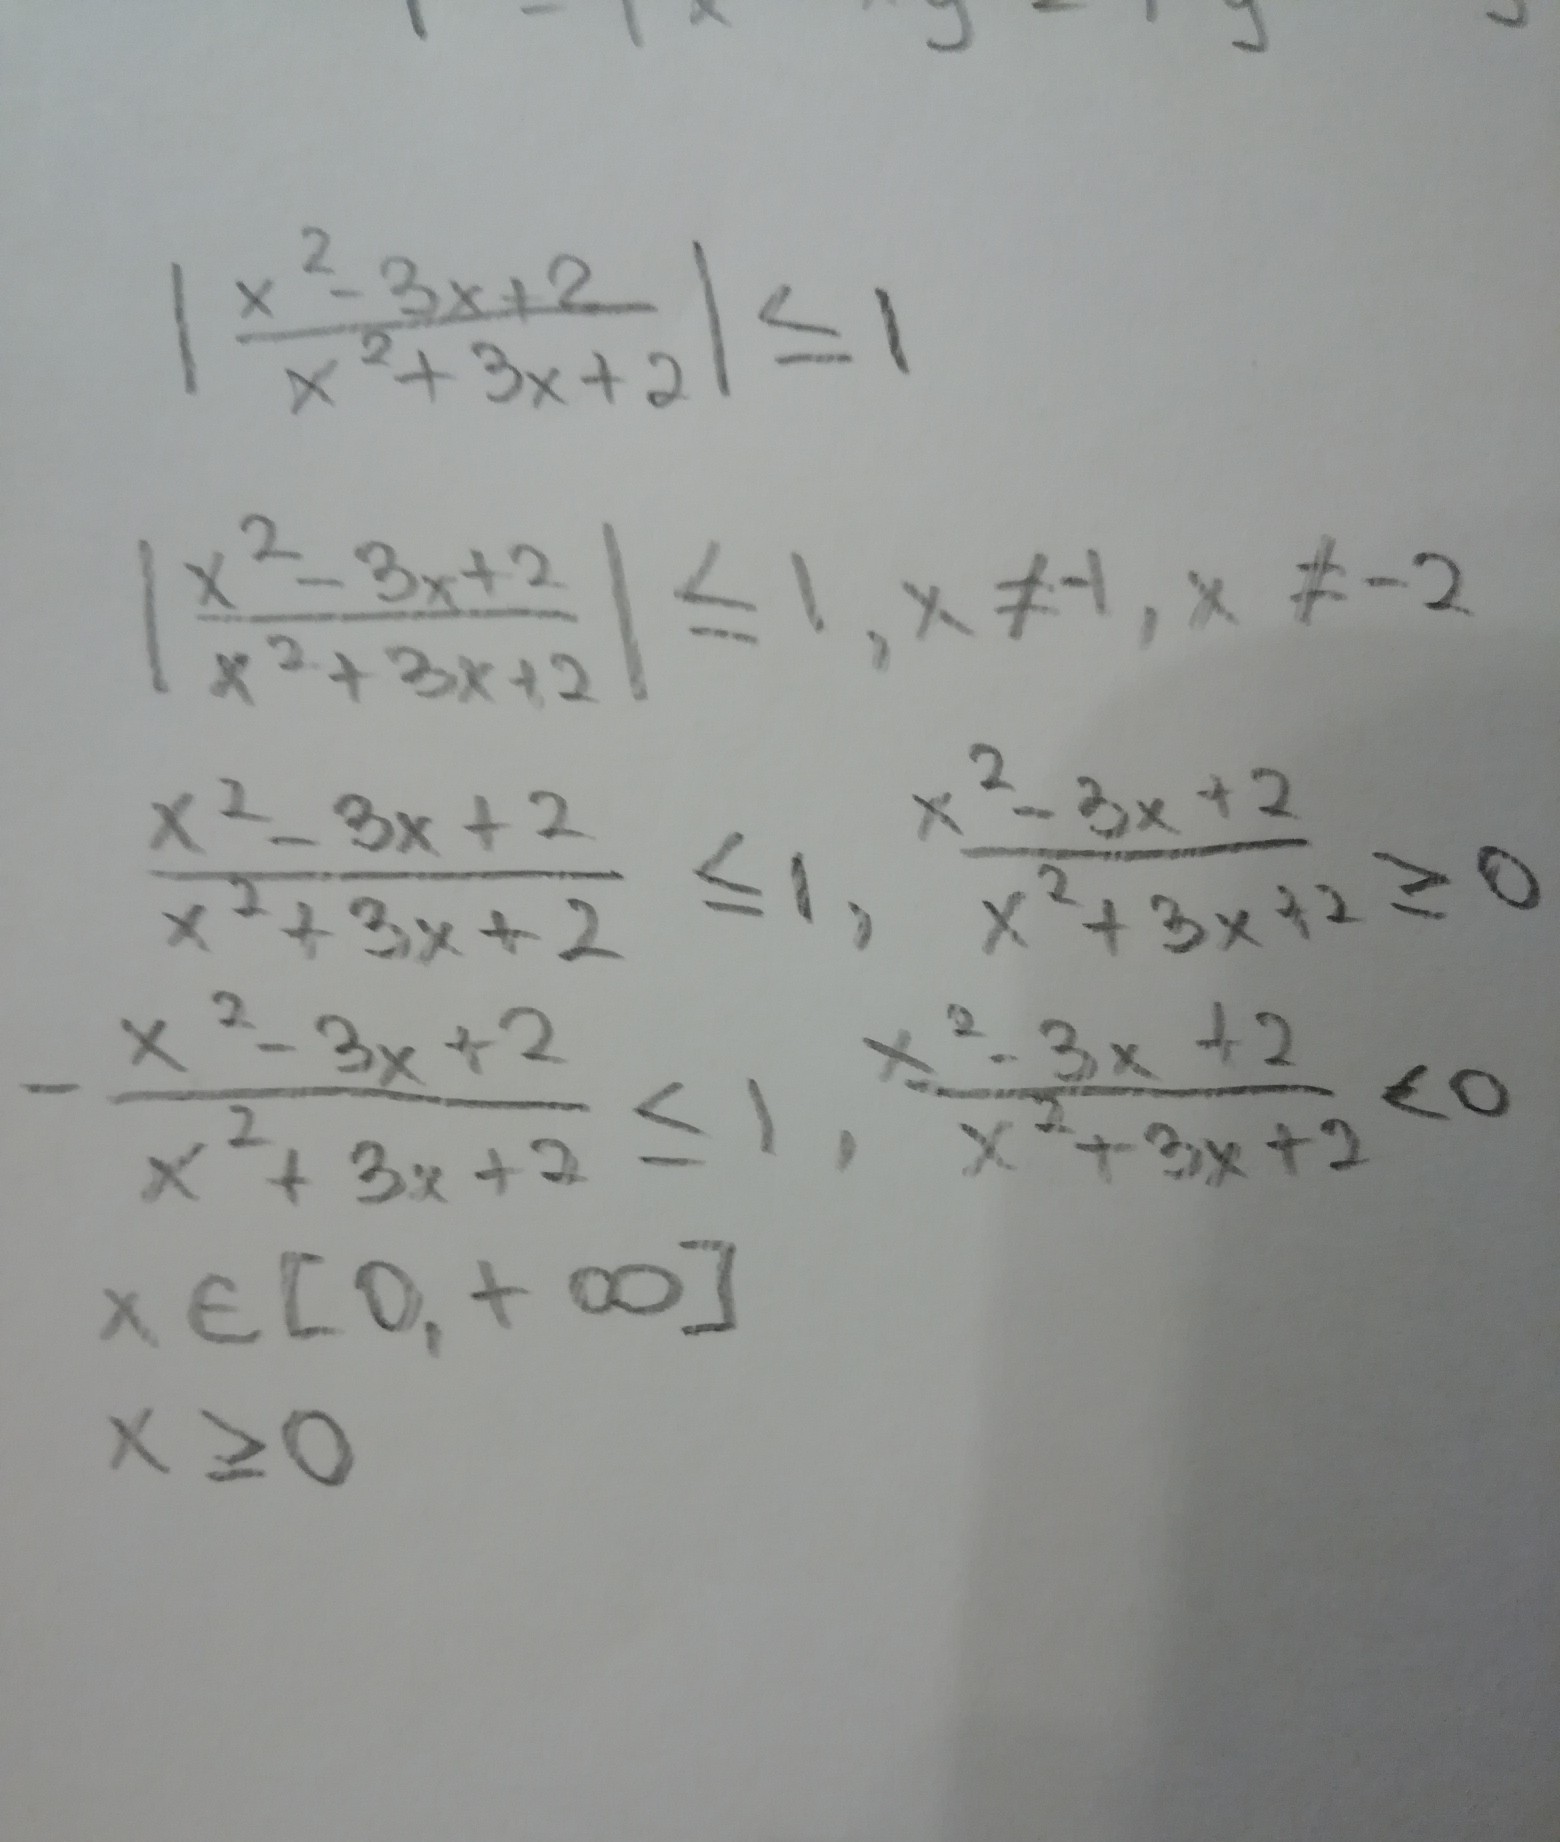 | x² - 3x + 2 / x² + 3x + 2 | ≤ 1
| x² - 3x + 2 / x² + 3x + 2 | ≤ 1, x ≠ -1, x ≠ -2
x² - 3x + 2 / x² + 3x + 2 ≤ 1, x² - 3x + 2 / x² + 3x + 2 ≥ 0
- x² - 3x + 2 / x² + 3x + 2 ≤ 1, x² - 3x + 2 / x² + 3x + 2 < 0
x ∈ [0, + ∞]
x ≥ 0